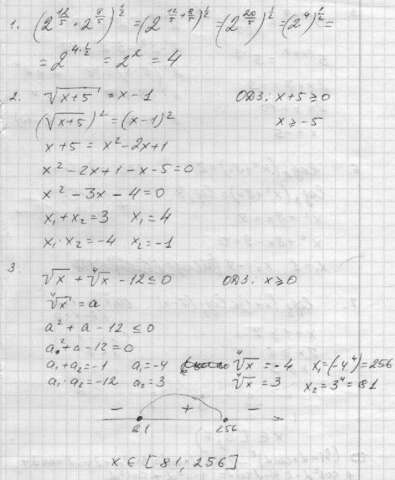 1. (2^{12/5} · 2^{8/5})^{1/2} = (2^{12/5 + 8/5})^{1/2} = (2^{20/5})^{1/2} = (2^4)^{1/2} =
= 2^{4·1/2} = 2^2 = 4
2. √(x+5) = x-1 ОДЗ: x+5 ≥ 0
(√(x+5))^2 = (x-1)^2 x ≥ -5
x+5 = x^2-2x+1
x^2-2x+1-x-5=0
x^2-3x-4=0
x₁+x₂=3 x₁=4
x₁·x₂=-4 x₂=-1
3. √x + ⁴√x -12 ≤ 0 ОДЗ: x ≥ 0
⁴√x = a
a^2+a-12 ≤ 0
a^2+a-12=0
a₁+a₂=-1 a₁=-4 ⁴√x = -4 x₁=(-4^4)=256
a₁·a₂=-12 a₂=3 ⁴√x = 3 x₂=3^4=81
- + -
81 256
x ∈ [81, 256]